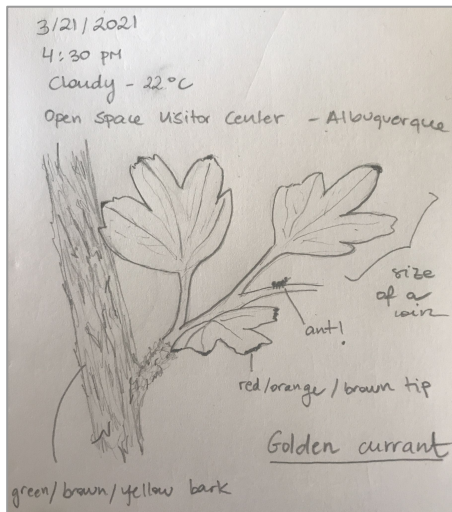 3/21/2021
4:30 PM
Cloudy - 22°C
Open Space Visitor Center - Albuquerque
size
of a
coin
ant!
red/orange/brown tip
Golden currant
green/brown/yellow bark